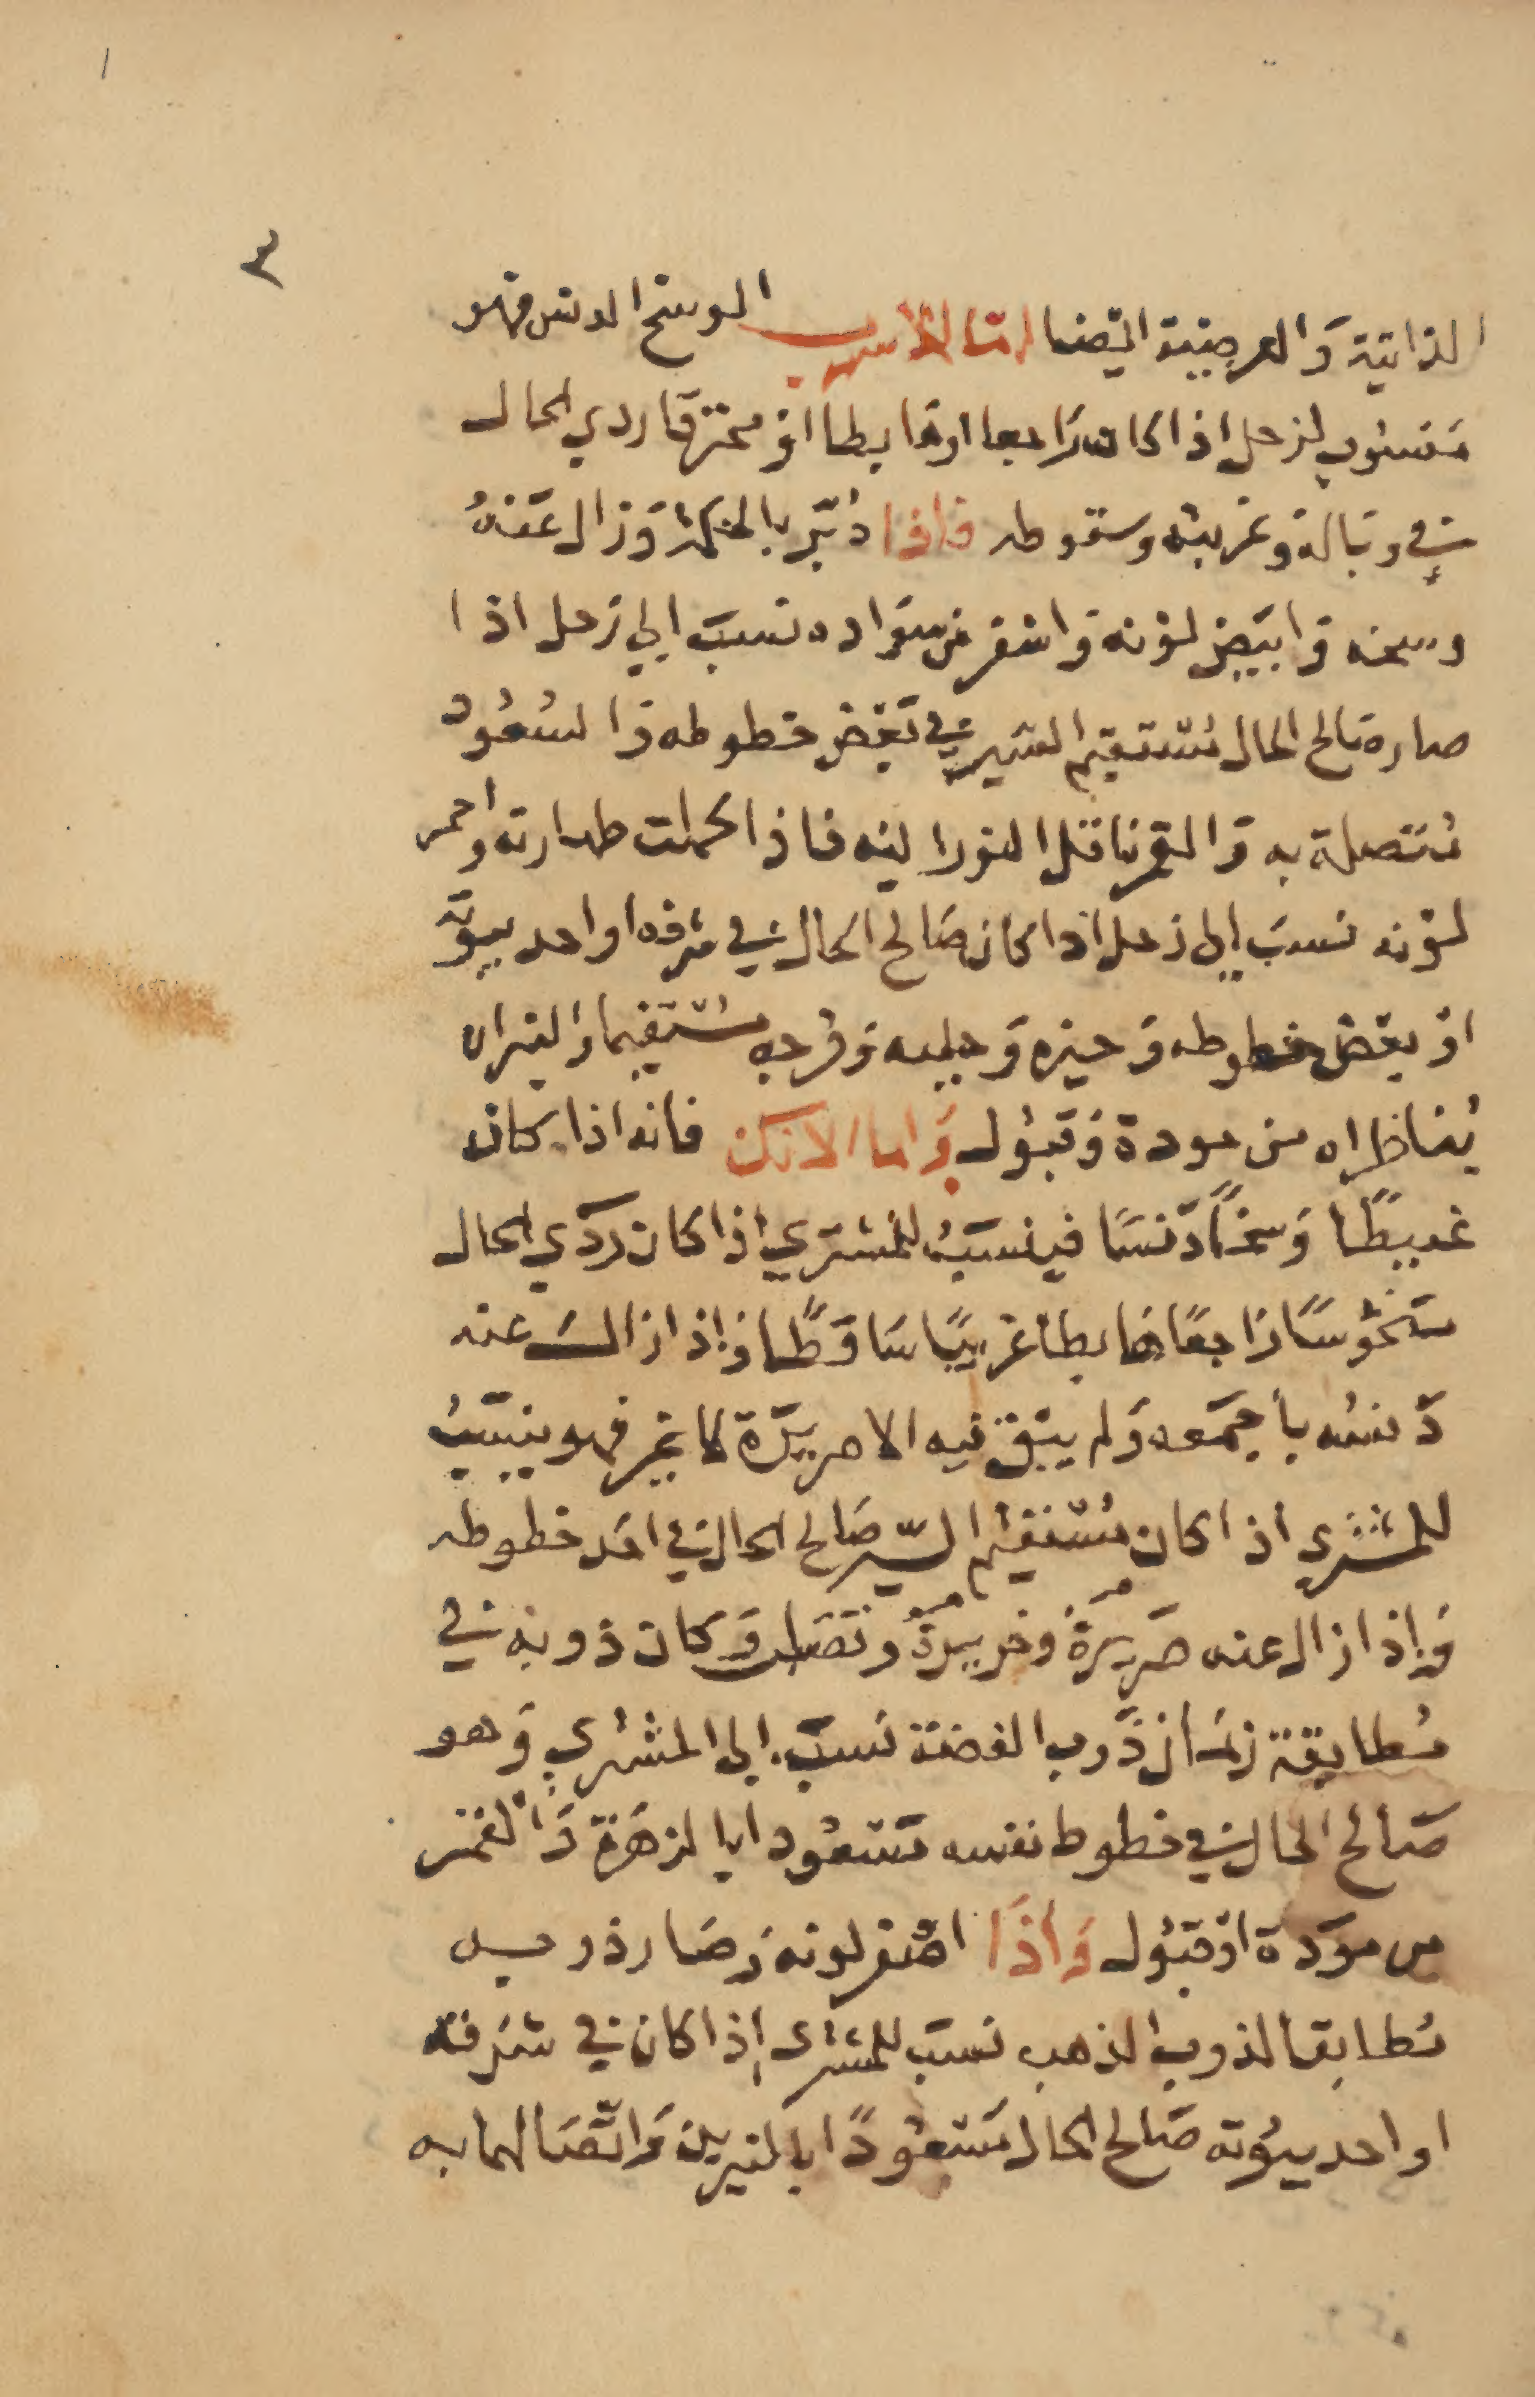 ٣
الذاتية والعرضية ايضا اما الاسرب الوسخ الدنس فهو
منسوب لزحل اذا كان راجعا او هابطا او محترقا ردي الحال
في وباله وغربته وسقوطه فاذا دُبّر بالحكمة وزال عنهُ
وسخه وابيض لونه واسفر من سواده نسبَ الي زحل اذا
صار صالح الحال مُستقيم السير في بَعْض حظوظه والسُعُود
مُتصلة به والقمر ناقل النور اليه فاذا كملت طهارته واحمر
لونه نسبَ إلى زحل اذا كان صَالح الحال في شرفه او احد بيوته
اوْ بعْض حظوظه وَحيزه وَحلبه وَفرحه مستقيما والنيران
يُناظراه من مودة وَقبُول وَاما الانك فانه اذا كان
عبيطًا وَسخًا دَنسًا فينسبُ للمشتري اذا كان ردي الحال
منحُوسًا راجعًا هابطا غريبًا سَاقطًا وَاذا زالَ عنه
دَنسُه باجمعَه وَلم يبق فيه الا صريرَة لا غير فهو ينسَبُ
للمشتري اذا كان مُستقيم السّير صَالح الحال في احَد حظوظه
وَاذا زال عنه صَريرهُ وخريرهُ ونَقصَانه وَكان ذوبه في
مُطابقة زمَان ذَوب الفضة نسبَ الى المشتري وَهو
صَالح الحال في حظوظ نفسه مَسْعُودا بالزهَرة وَالقمر
من موَدة اوْ قبُول وَاذَا اصْفر لونه وَصَار ذوبه
مُطابقا لذوب الذهب نسبَ للمشترى إذا كان في شرَفه
او احد بيُوته صَالح الحال مَسْعُودًا بالنيرين وَاتّصَالهما به